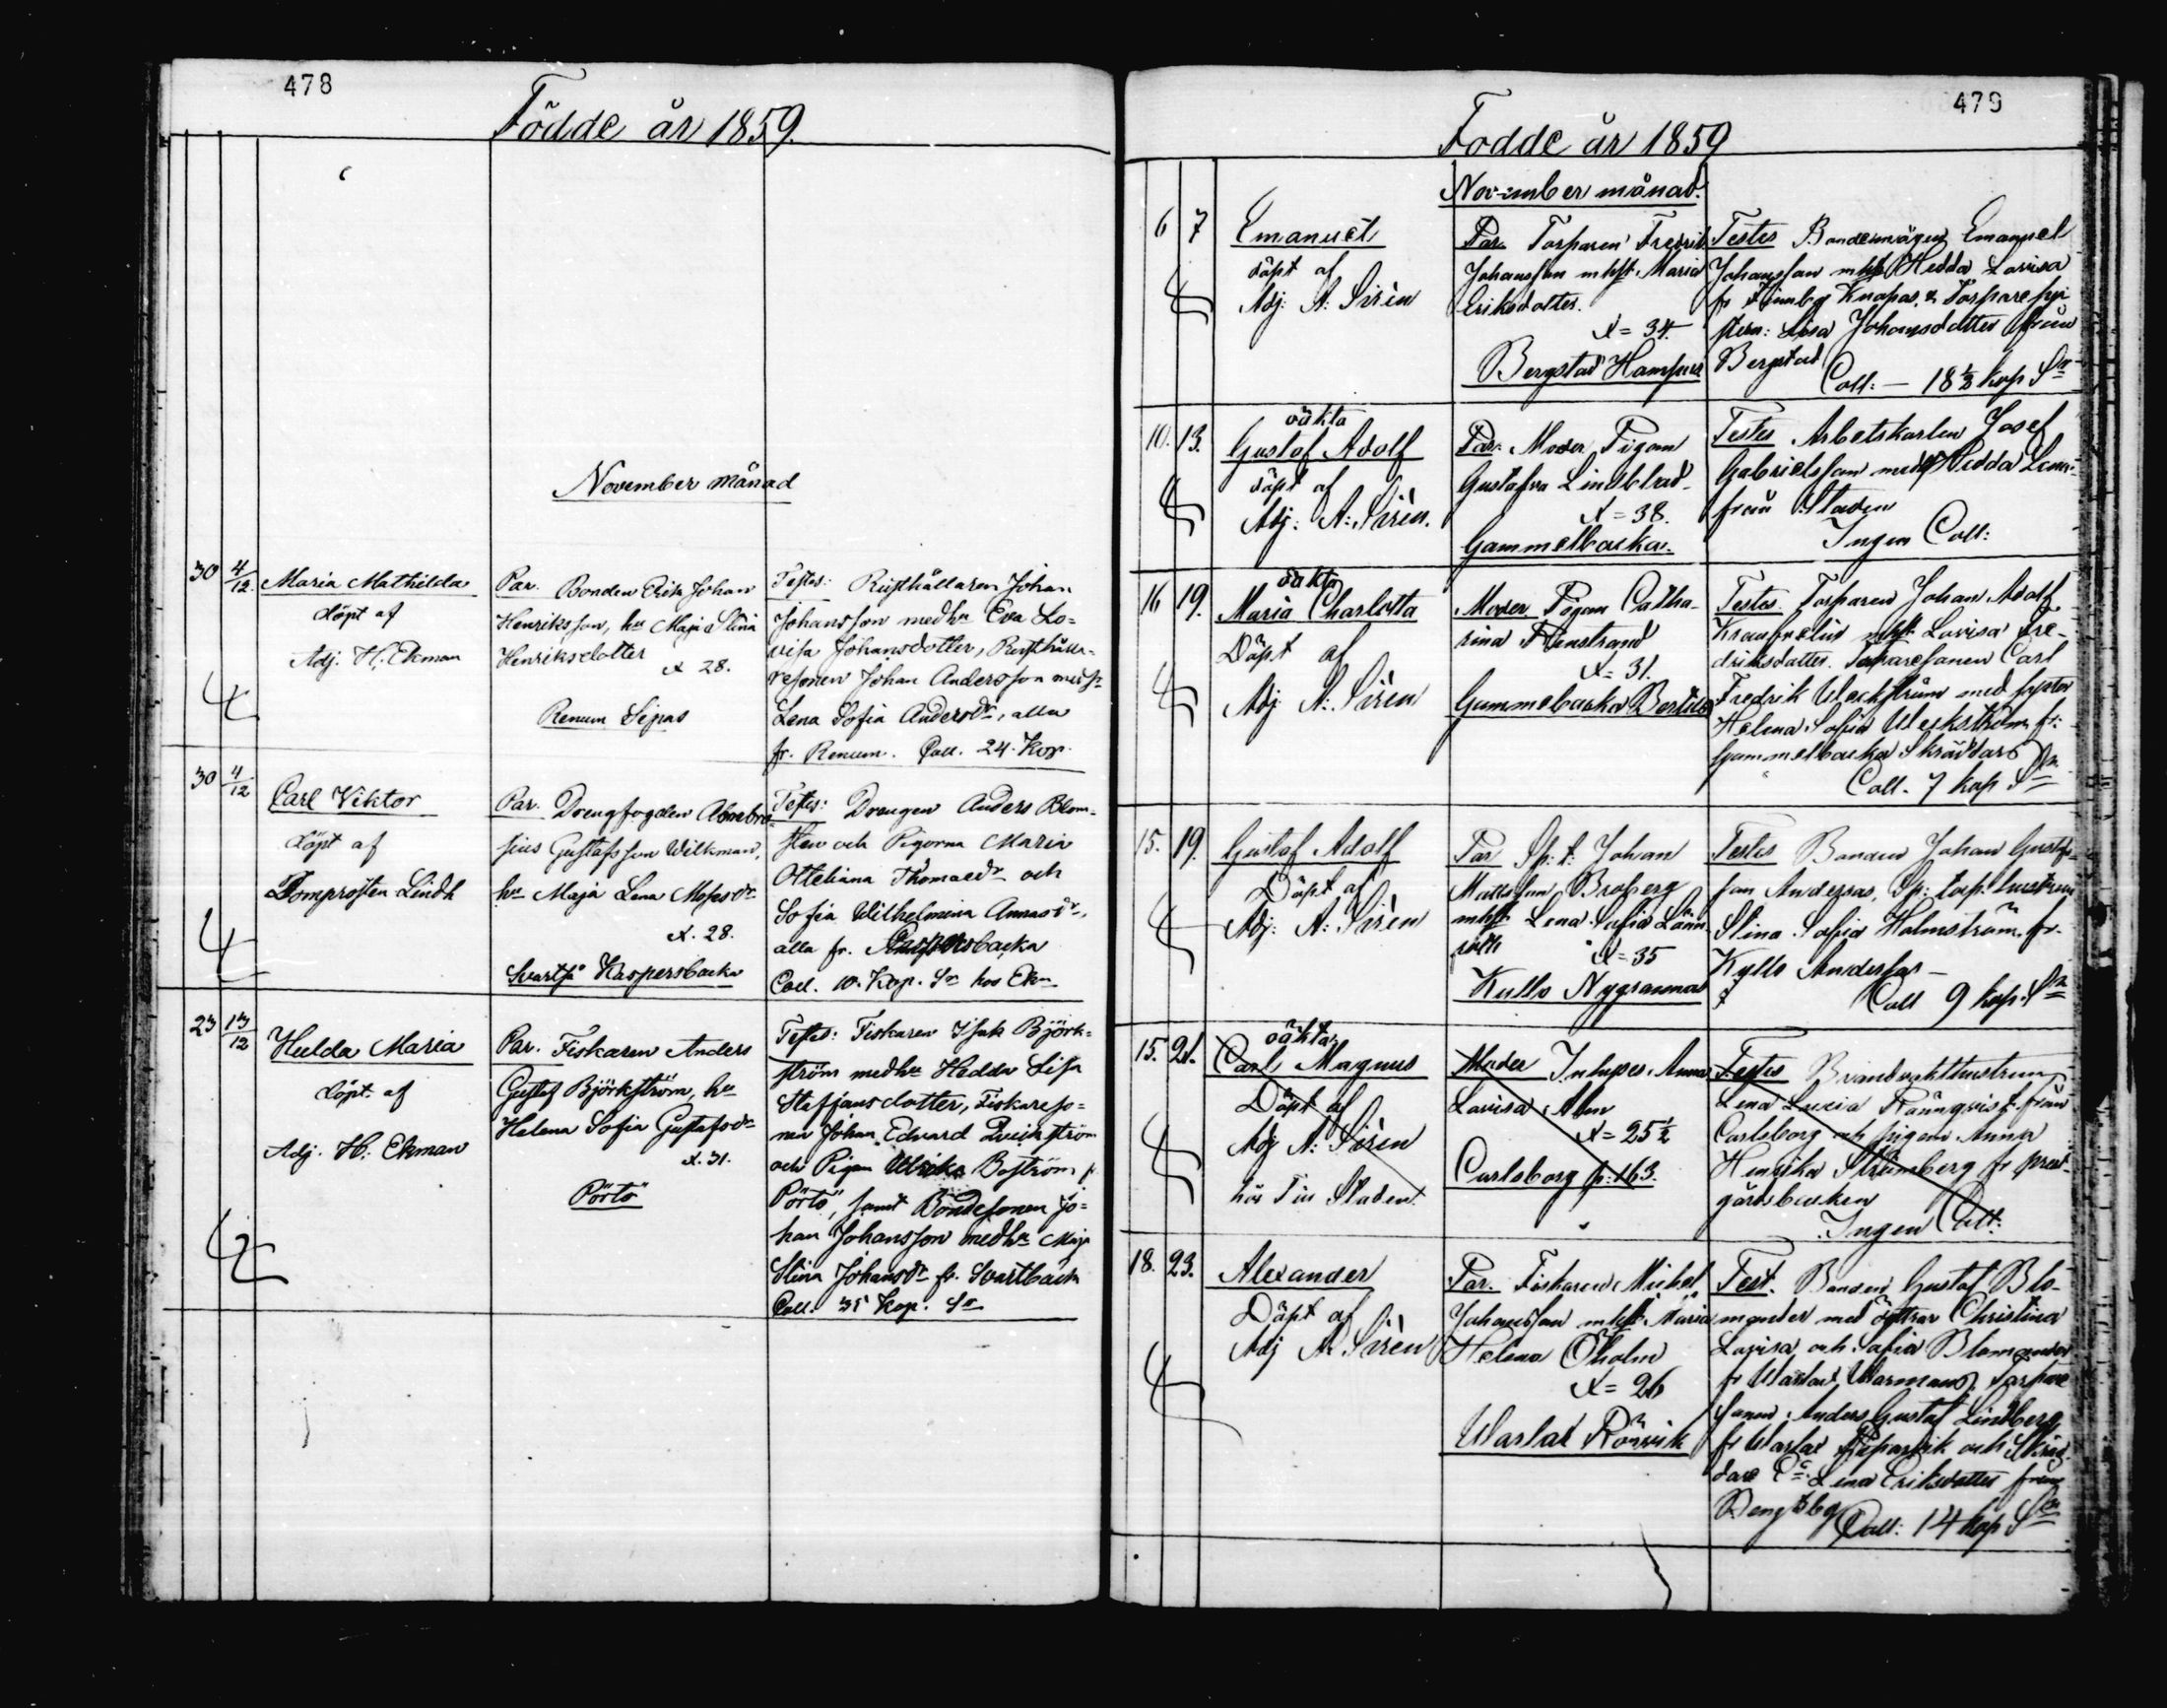 478
Födde år 1859.
November månad
30 4/12 Maria Mathilda
döpt af
Adj. H. Ekman
Par. Bonden Erik Johan
Henriksson, hu Maja Stina
Henriksdotter
x 28.
Renum Sipas
Testes: Rusthållaren Johan
Johansson med hu Eva Lo=
visa Johansdotter, Rusthålla=
resonen Johan Andersson med sr
Lena Sofia Andersdr, alla
fr. Renum. Coll. 24. Kop.
30 4/12
Carl Viktor
döpt af
Domprosten Lindh
Par. Drengfogden Ambro
sius Gustafsson Wilkman,
hu Maja Lena Mosesdr
x. 28.
Svartså Kaspersbacka
Testes: Drengen Anders Blom-
sten och Pigorna Maria
Otteliana Thomasdr och
Sofia Wilhelmina Annasdr,
alla fr. Kaspersbacka
Coll. 10. Kop. Sr hos Ekn
23 13/12
Hulda Maria
döpt. af
Adj. H. Ekman
Par. Fiskaren Anders
Gustaf Björkström, hu
Helena Sofia Gustafsdr
x. 31.
Pörtö
Testes: Fiskaren Isak Björk=
ström med hu Hedda Lisa
Staffansdotter, Fiskareso=
nen Johan Edvard Qvickström
och Pigan Ulrika Boström fr
Pörtö, samt Bondesonen Jo=
han Johansson med hu Maja
Stina Johansdr fr. Svartbäck
Coll. 35 Kop. Sr
479
Födde år 1859
November månad.
6 7 Emanuel
döpt af
Adj: A: Sirèn
Par. Torparen Fredrik
Johansson m hst. Maria
Eriksdotter.
x = 34.
Bergstad Hampus
Testes Bondemågen Emanuel
Johansson m hst Hedda Lovisa
fr Finnby Knapas, & Torpare
Lisa Johansdotter från
Bergstad
Coll: — 18 1/2 kop Sr
10. 13. oäkta
Gustaf Adolf
döpt af
Adj: A: Sirèn.
Par. Moder Pigan
Gustafva Lindblad
x = 38.
Gammelbacka.
Testes Arbetskarlen Josef
Gabrielsson med Hedda Lena
från Staden
Ingen Coll:
16 19. oäkta
Maria Charlotta
Döpt af
Adj A: Sirèn
Moder Pigan Catha-
rina Flinstrand
x = 31.
Gammelbacka Bertils
Testes. Torparen Johan Adolf
m hst. Lovisa Fre-
driksdotter. Torparesonen Carl
Fredrik Weckström med syster
Helena Sofia Weckström fr:
Gammelbacka Skräddars
Coll. 7 kop Sr
15. 19. Gustaf Adolf
Döpt af
Adj: A: Sirèn
Par Sp: t: Johan
Mattsson Broberg
m hst Lena Sofia Lönn
roth x = 35
Kullo Nygranna
Testes Bonden Johan Gustafs-
son Andersas, Sp: torp. hustrun
Stina Sofia Holmström fr.
Kullo Andersas —
Coll 9 kop. Sr
15. 21. oäkta
Carl Magnus
Döpt af
Adj A: Sirèn
hör Till Staden
Moder Inhyses Anna
Lovisa Alm
x = 25 1/2
Carlsborg p: 163.
Testes Brandvakthustrun
Lena Lovisa Rönnqvist från
Carlsborg och pigan Anna
Henrika Strömberg fr prest-
gårdsbacken
Ingen Coll:
18. 23. Alexander
Döpt af
Adj A. Sirèn
Par. Fiskaren Michel
Johansson m hst. Maria
Helena Öholm
x = 26
Warlax Rönvik
Test. Bonden Gustaf Blo-
mander med döttrar Christina
Lovisa, och Sofia Blomander
fr Warlax Warmans, Torpare
sonen Anders Gustaf Lindberg
fr Warlax och Skräd-
dare Lena Eriksdotter från
Coll: 14 kop Sr